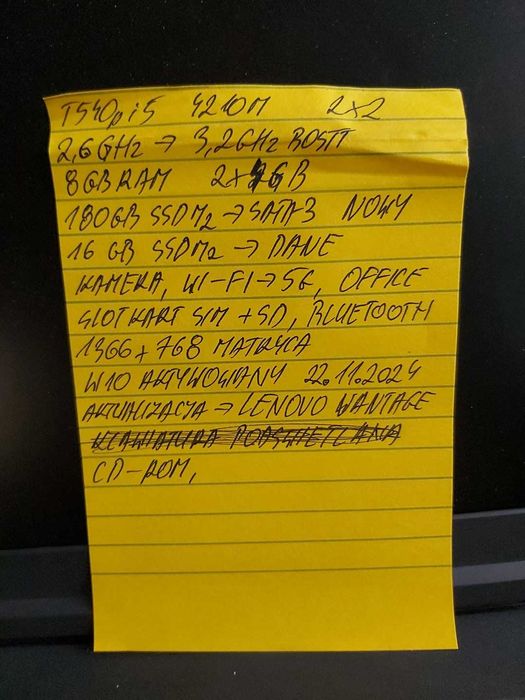 T540p i5 4210M 2x2
2,6GHz → 3,2GHz BOSTT
8GB RAM 2x4GB
180GB SSDM2 → SATA3 NOWY
16 GB SSDM2 → DANE
KAMERA, WI-FI → 5G, OFFICE
SLOT KART SIM + SD, BLUETOOTH
1366 x 768 MATRYCA
W10 AKTYWOWANY 22.11.2024
AKTUALIZACJA → LENOVO WANTAGE
KLAWIATURA PODSWIETLANA
CD-ROM,